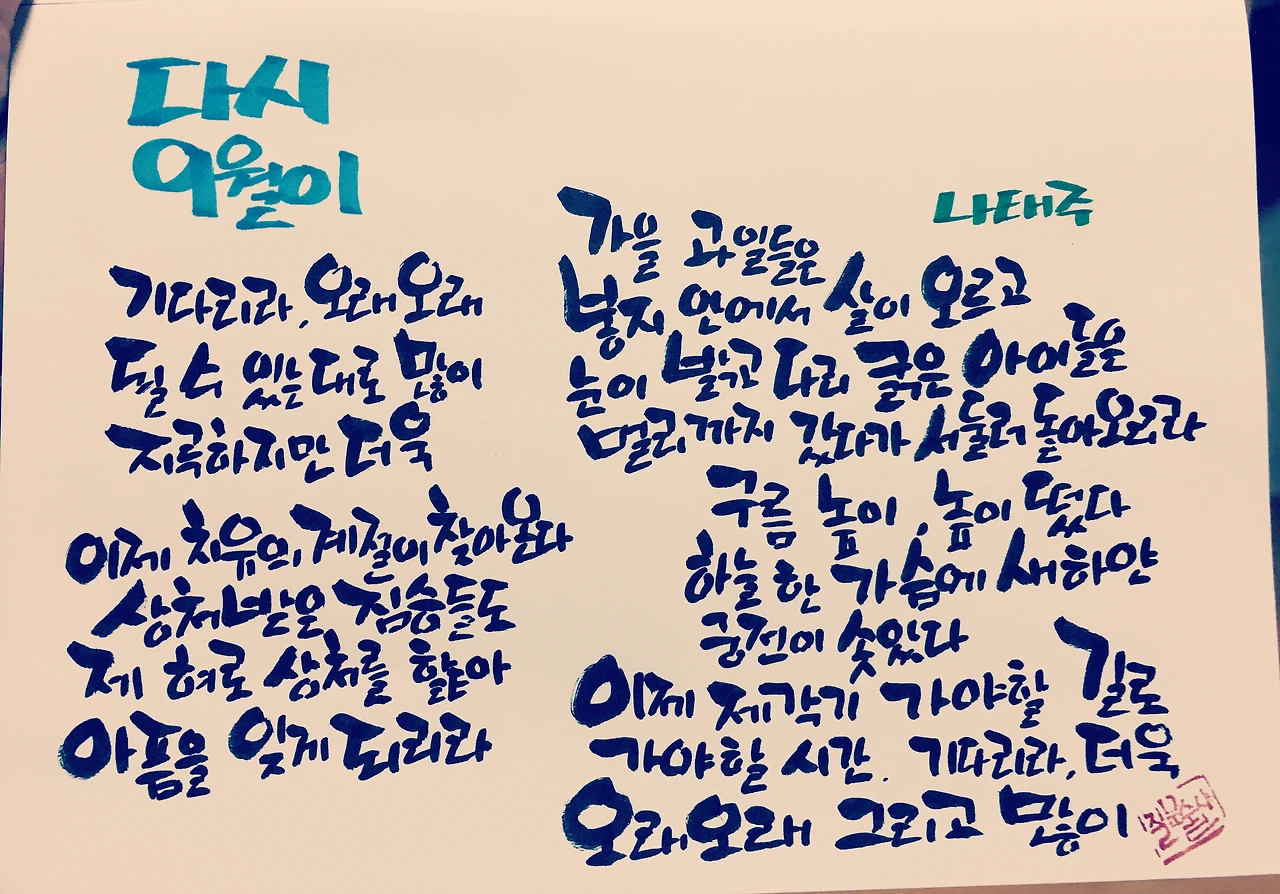 다시
9월이
나태주
기다리라, 오래 오래
될 수 있는 대로 많이
지루하지만 더욱
이제 치유의 계절이 찾아온다
상처받은 짐승들도
제 혀로 상처를 핥아
아픔을 잊게 되리라
가을 과일들은
봉지 안에서 살이 오르고
눈이 밝고 다리 굵은 아이들은
멀리까지 갔다가 서둘러 돌아오리라
구름 높이, 높이 떴다
하늘 한 가슴에 새하얀
궁전이 솟았다
이제 제각기 가야할 길로
가야할 시간. 기다리라, 더욱
오래오래 그리고 많이